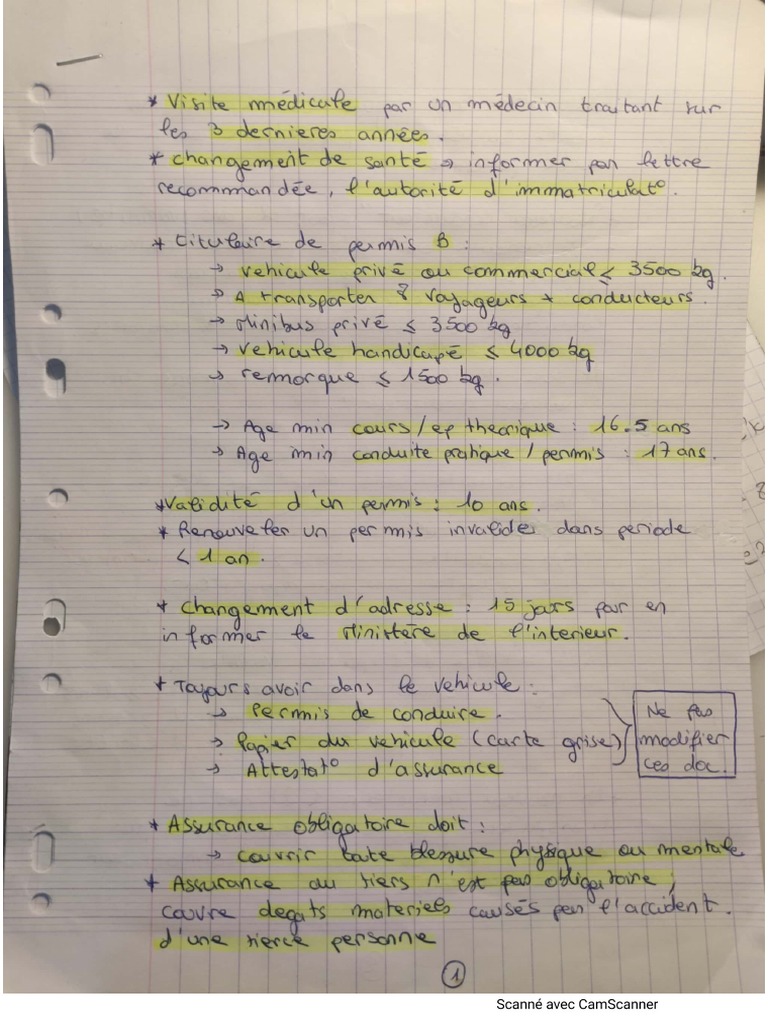 * Visite médicale par un médecin traitant sur
les 3 dernieres années.
* changement de santé → informer par lettre
recommandée, l'autorité d'immatriculat°.
* titulaire de permis B :
→ vehicule privé ou commercial ≤ 3500 kg.
→ A transporter 8 voyageurs + conducteurs.
→ Minibus privé ≤ 3500 kg
→ vehicule handicapé ≤ 4000 kg
→ remorque ≤ 1500 kg.
→ Age min cours/ep theorique : 16.5 ans
→ Age min conduite pratique / permis : 17 ans.
* Validité d'un permis : 10 ans.
* Renouveler un permis invalide dans periode
< 1 an.
* Changement d'adresse : 15 jours pour en
informer le Ministère de l'interieur.
* Toujours avoir dans le vehicule :
→ Permis de conduire.
→ Papier du vehicule (carte grise)
→ Attestat° d'assurance
Ne pas
modifier
ces doc.
* Assurance obligatoire doit :
→ couvrir toute blessure physique ou mentale
* Assurance au tiers n'est pas obligatoire,
couvre degats materiels causés par l'accident.
d'une tierce personne
1
Scanné avec CamScanner